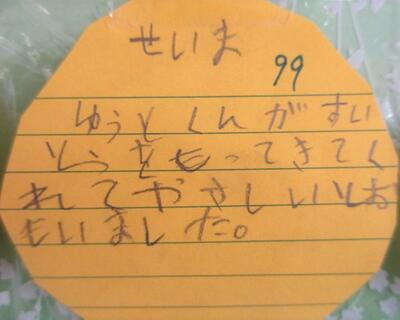 せいま
99
ゆうとくんがすい
とうをもってきてく
れてやさしいしお
もいました。